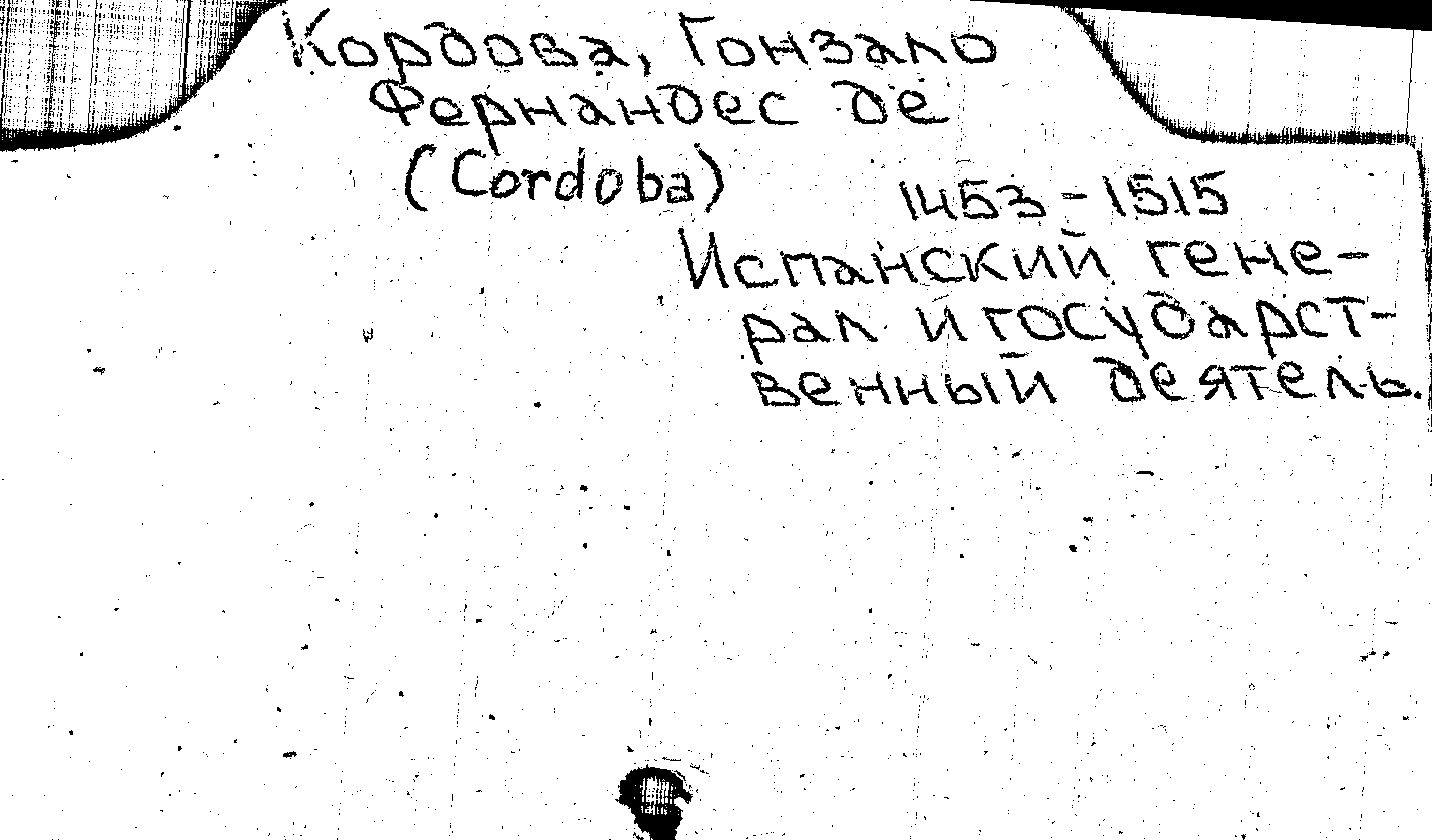 Кордова, Гонзало
Фернандес де
(Cordoba)
1453-1515
Испанский гене-
рал и государст-
венный деятель.